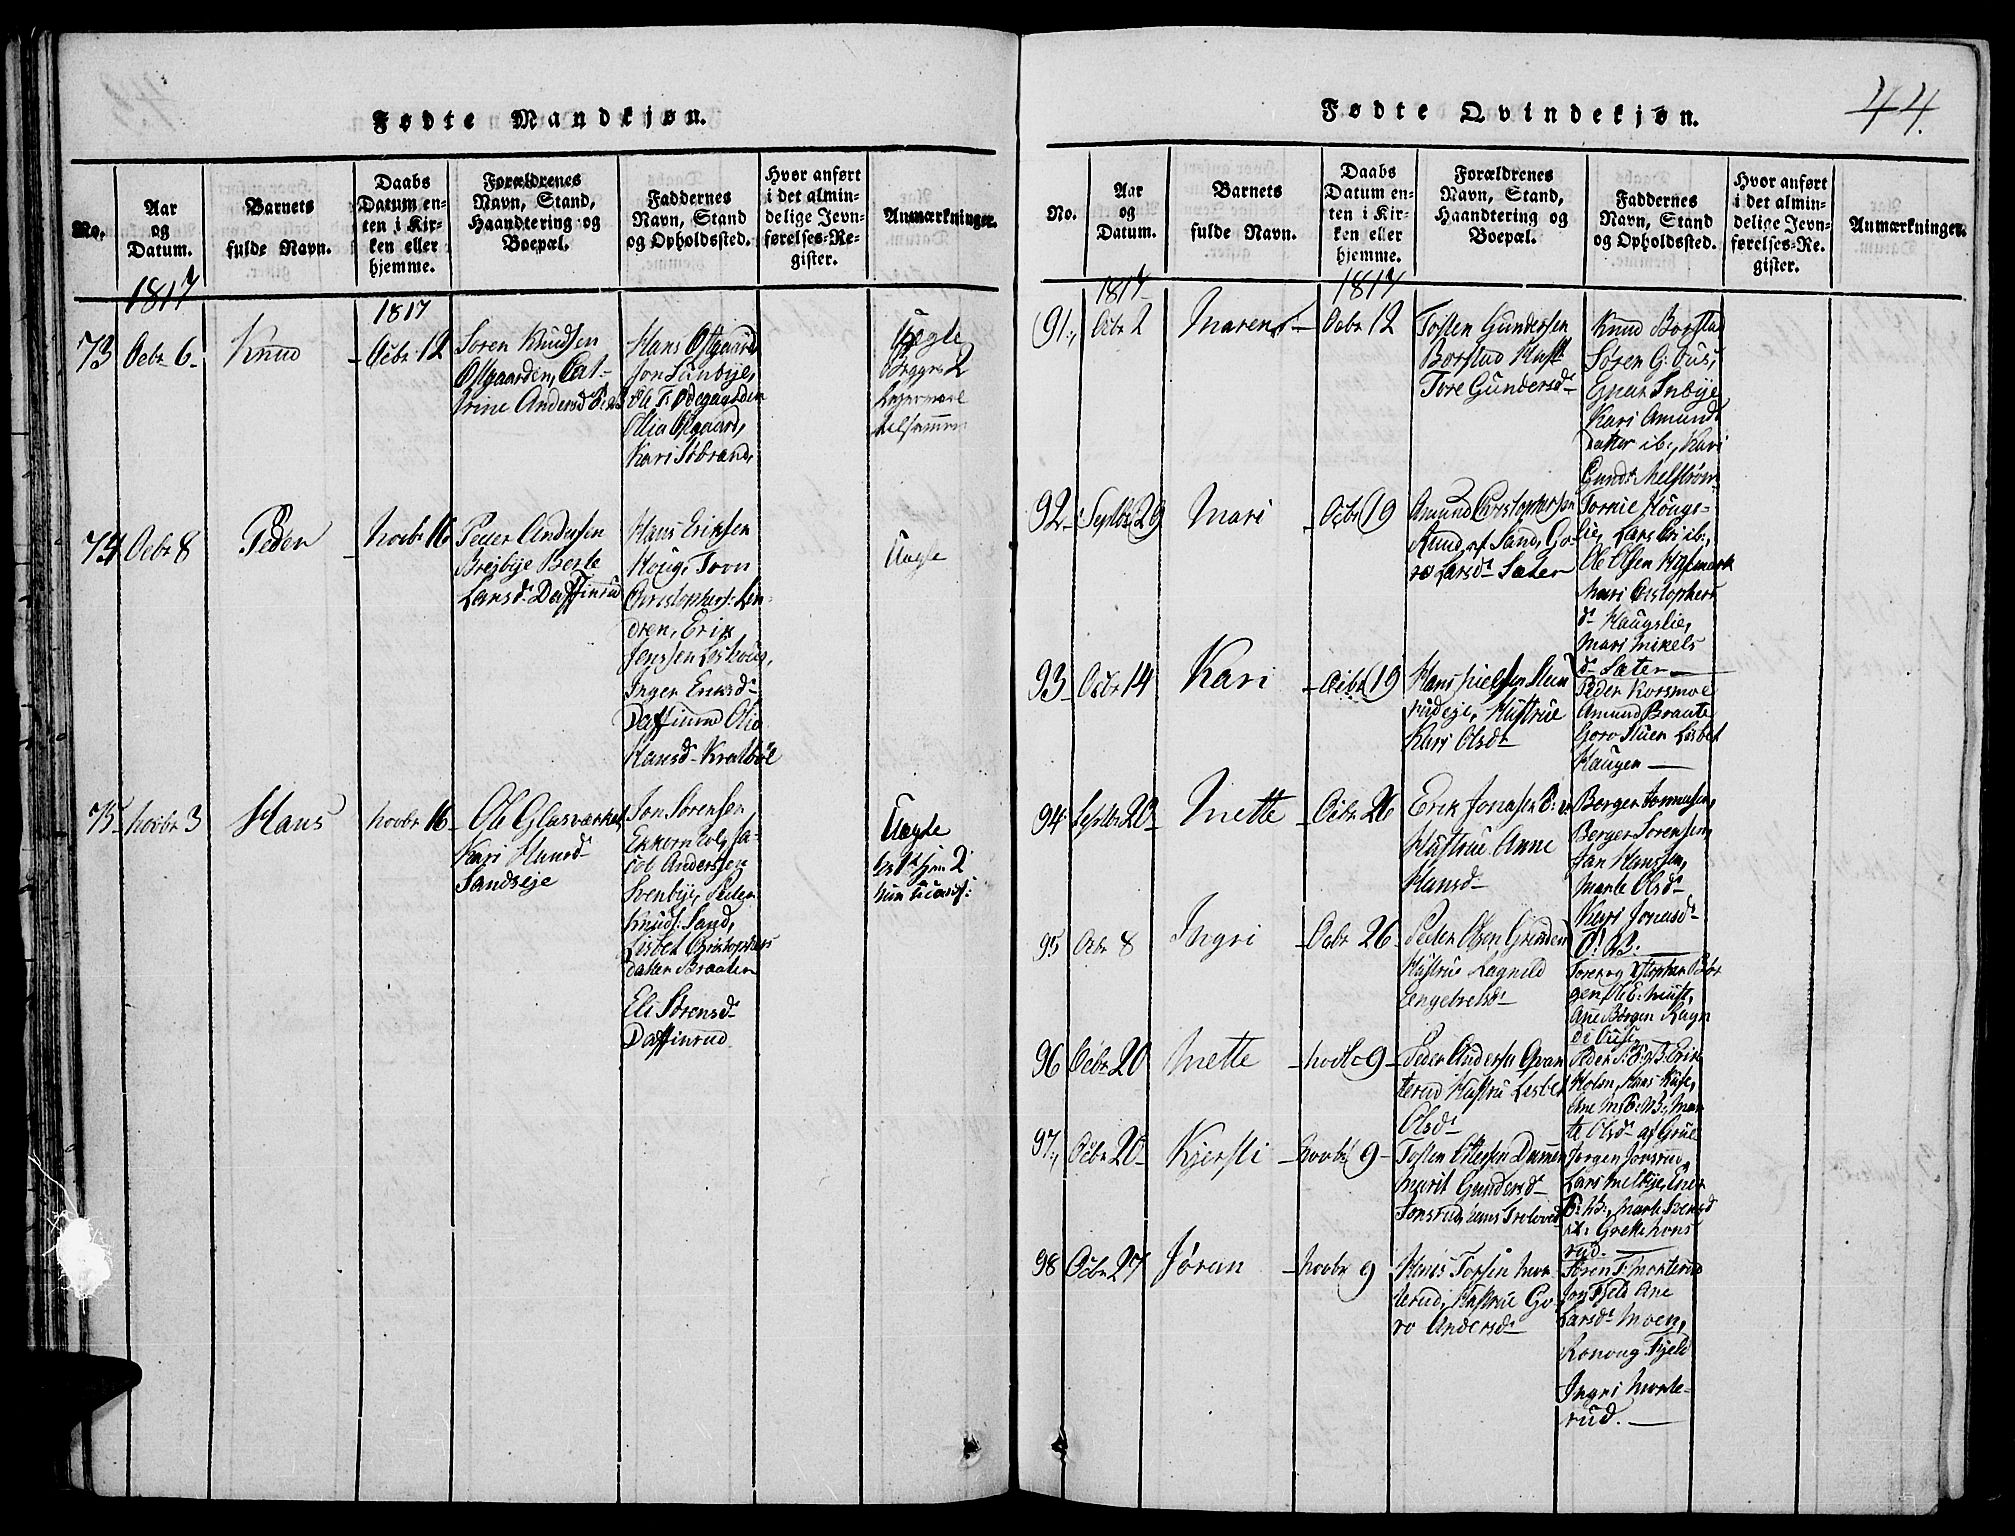 Fødte Mandkjøn.
No.
Aar
og
Datum.
Barnets
fulde Navn.
Daabs
Datum en-
ten i Kir-
ken eller
hjemme.
Forældrenes
Navn, Stand,
Haandtering og
Boepæl.
Faddernes
Navn, Stand
og Opholdssted.
Hvor anført
i det almin-
delige Jevn-
førelses-Re-
gister.
Anmærkninger.
1817
1817
73 Octbr 6. Knud Octbr 12
Søren Knudsen
Østgaarden, Cat-
rine Andersd
Hans Østgaard,
Jon Sønbye,
Ole T. Ødegaarden
Olia Østgaard,
Kari Søbrand,
Uægte
74 Octbr 8 Peder Novbr 16
Peder Andersen
Brejbije Berte
Larsdr Daffinrud
Hans Eriksen
Houg, Tron
Christophers: Lin-
dren, Erik
Jonssen
Inger Eriksdr
Daffinrud Olia
Hansdr
Uægte
75 Novbr 3 Hans Novbr 16
Ole Glasværket,
Kari Hansdr
Sandseje
Jon Sørensen
Ekkornhol, Ja-
cob Andersen
Svenbye, Peder
Knuds: Sand,
Lisbet Christophers
datter Braaten
Eli Sørensdr
Daffinrud.
Uægte
44.
Fødte Qvindekjøn.
No.
Aar
og
Datum.
Barnets
fulde Navn.
Daabs
Datum en-
ten i Kir-
ken eller
hjemme.
Forældrenes
Navn, Stand,
Haandtering og
Boepæl.
Faddernes
Navn, Stand
og Opholdssted.
Hvor anført
i det almin-
delige Jevn-
førelses-Re-
gister.
Anmærkninger.
1817
1817
91., Octbr 2 Maren Octbr 12
Tosten Gundersen
Borstad Hust:
Tore Gundersdr
Knud Borstad
Søren G: Ous,
Gunar Inbije
Kari Amund
datter ib:, Kari
Gundr Melstrøm
92 Septbr 29 Mari Octbr 19
Amund Christophersen
Ruud af Sand, Go-
ro Larsdr Sæter
Tornie Houge-
lie, Lars ib:,
Ole Olsen Kalmark
Mari Christophers
dr Haugslie,
Mari Mikels
dr Sæter
93 Octbr 14 Kari Octbr 19
Hans Nielsen Stuen
rudeje, Hustrue
Kari Olsdr
Peder Korsmoe
Amund Braate
Goro Stuen Lisbet
Haugen
94 Septbr 20 Mette Octbr 26
Erik Jonasen
Hustrue Anne
Hansdr
Børger Asmusen,
Berger Sørensen,
Jan Hanssen,
Marte Olsdr
Kari Jonasdr
95 Octbr 8 Ingri Octbr 26
Peder Olsen Grinden
Hustrue Lagnild
Engebretsdr
Tore og Cstophar Bør
gen, Ole E:
Ane Børgen Ragn
di Ouse
96 Octbr 20 Mette Novbr 9
Peder Anderse Qvan
terud Hustru Lisbet
Olsdr
Peder Erik
Holm, Hans Huse,
Ane Mar
te Olsdr af Grue
97., Octbr 20 Kjersti Novbr 9
Tosten Ellefsen Dammen
Marit Gundersdr
Jonsrud hans Trolovede
Jørgen Jonsrud,
Lars Melbije, Ener
Marte Svensd
Grethe Jons
rud.
98 Octbr 27 Jøran Novbr 9
Hans Torsen Mor
terud, Hustrue Go-
ro Andersdr
Søren T: Morterud
Jon Fjeld Ane
Larsdr Moen,
Ronoug Fjeld
Ingri Morte-
rud.